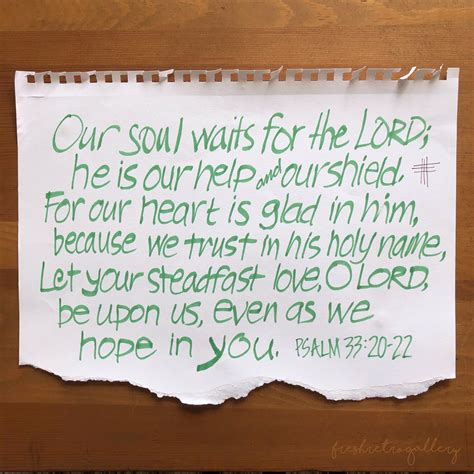 Our soul waits for the LORD;
he is our help and our shield.
For our heart is glad in him,
because we trust in his holy name,
Let your steadfast love, O LORD,
be upon us, even as we
hope in you. PSALM 33:20-22
freshretrogallery